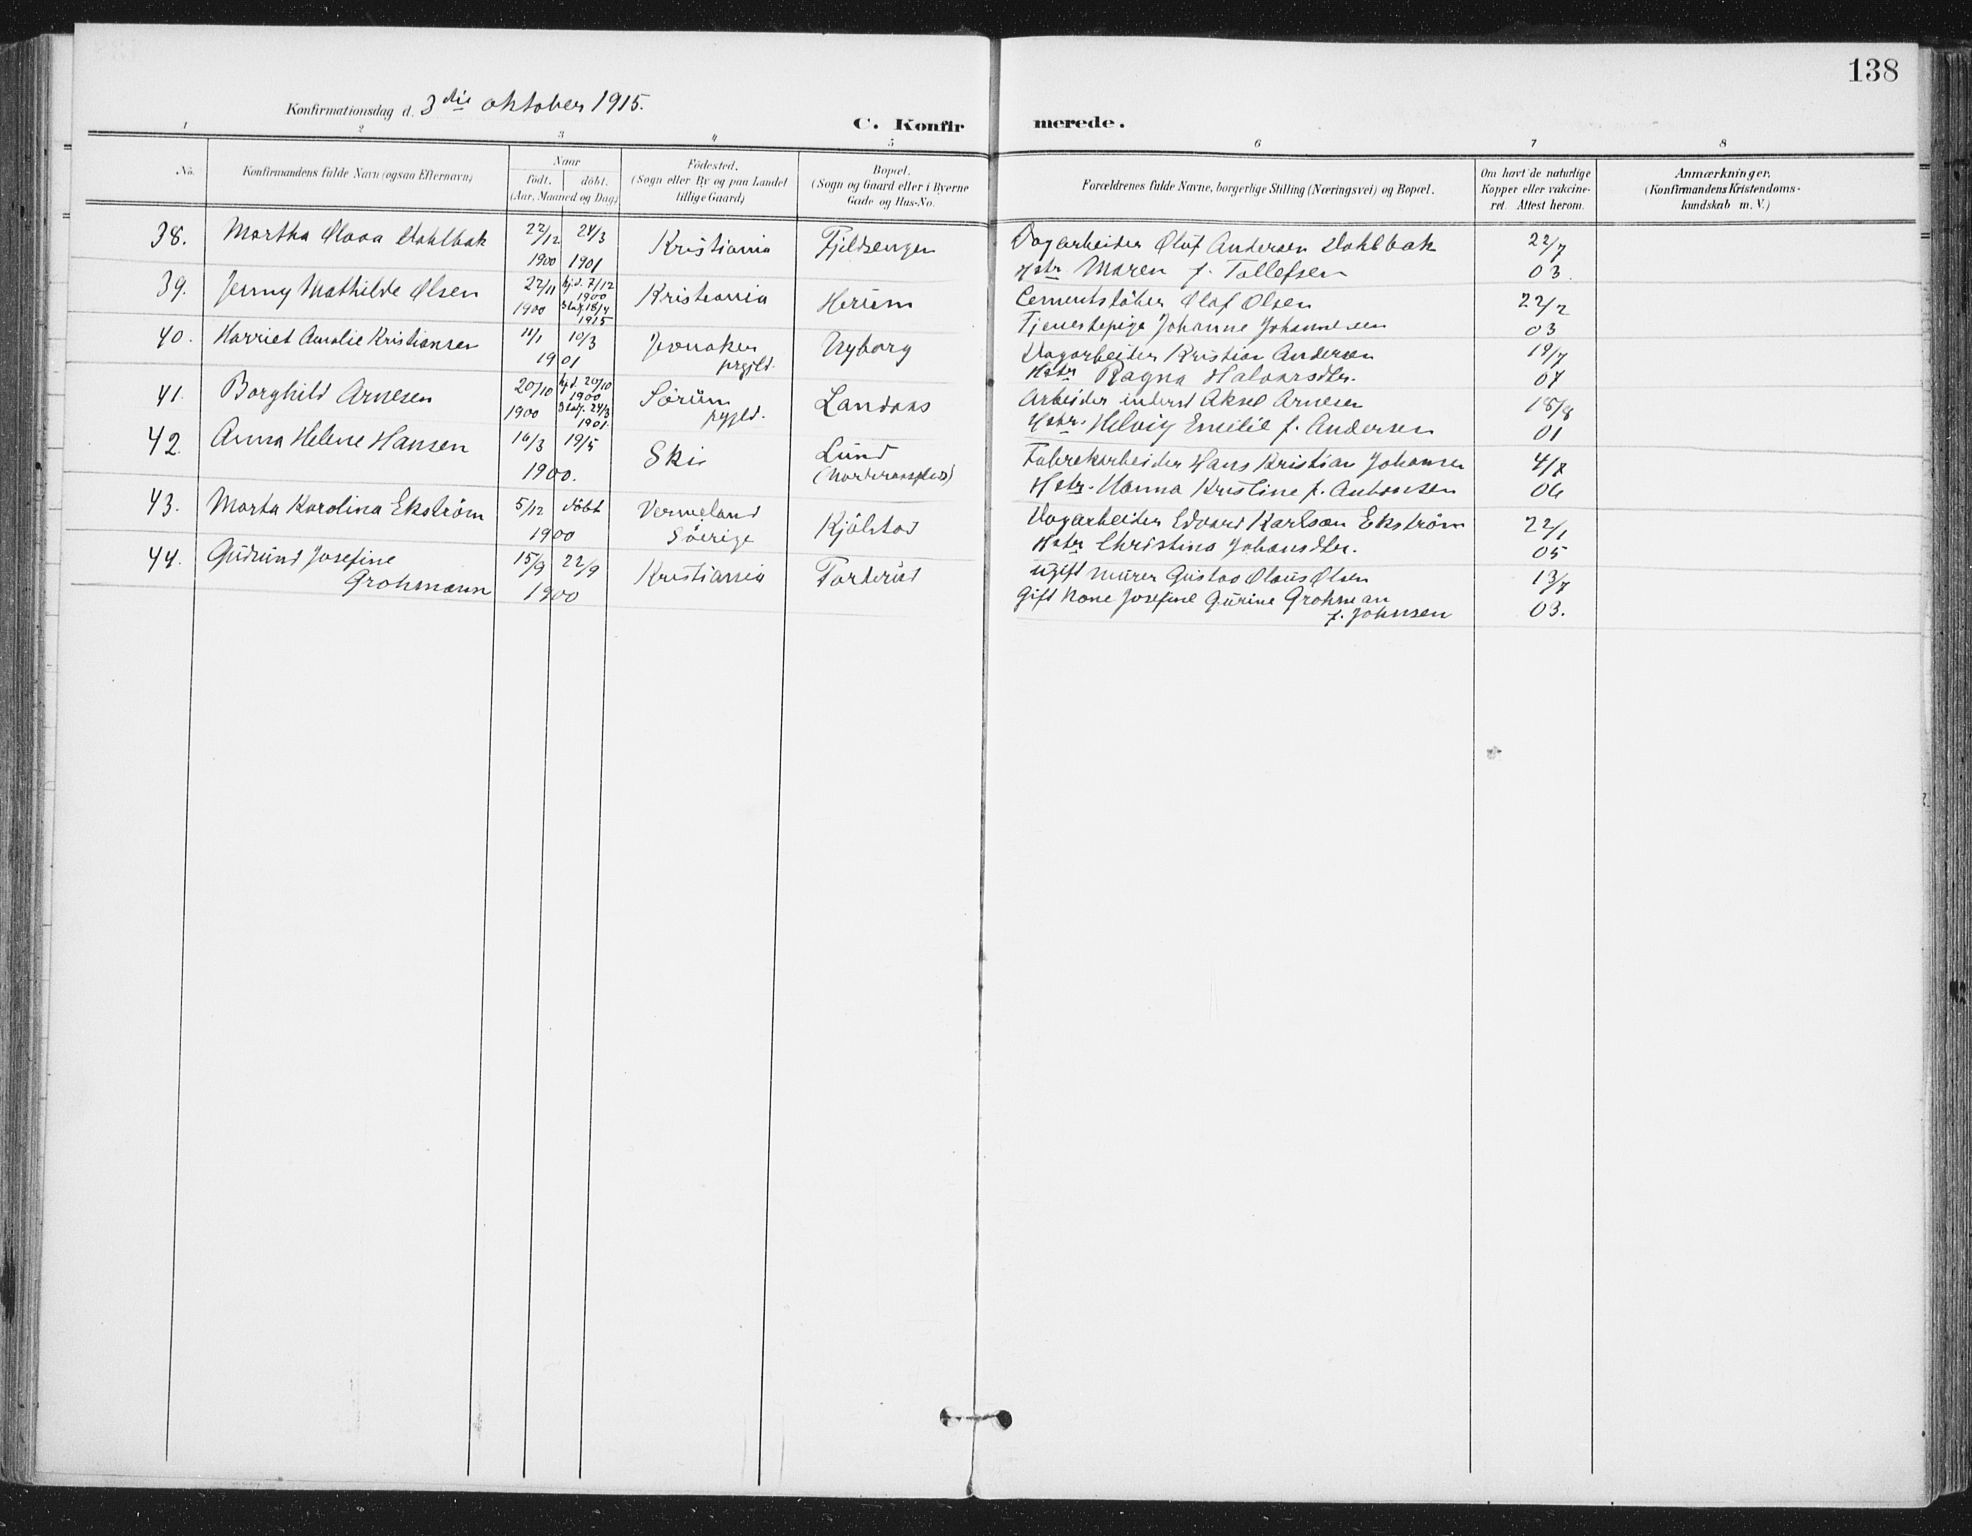 138
Konfirmationsdag d. 3die oktober 1915.
C. Konfirmerede.
1 2 3 4 5 6 7 8
No.
Konfirmandens fulde Navn (ogsaa Efternavn)
Naar
født. døbt.
(Aar, Maaned og Dag)
Fødested.
(Sogn eller By og paa Landet
tillige Gaard)
Bopæl.
(Sogn og Gaard eller i Byerne
Gade og Hus-No.
Forældrenes fulde Navne, borgerlige Stilling (Næringsvei) og Bopæl.
Om havt de naturlige
Kopper eller vakcine-
ret. Attest herom.
Anmærkninger.
(Konfirmandens Kristendoms-
kundskab m. V.)
38. Martha Olava Dahlbak 22/12 24/3 Kristiania Fjeldsenger Dagarbeider Oluf Andersen Dahlbak 22/7
1900 1901 Hstr Maren f. Tollefsen 03.
39. Jenny Mathilde Olsen 22/11 hj.d. 7/12 1900 Kristiania Herum Cementstøber Olaf Olsen 22/2
1900 18/4 1915 Tjenestepige Johanne Johannesen 03
40. Harriet Amalie Kristiansen 11/1 10/3 Jevnaker Nyborg Dagarbeider Kristian Andersen 19/7
1901 prgjld. Hstr Ragna Halvorsdtr. 07
41. Borghild Arnesen 20/10 hj.d. 20/10 1900 Sørum Landaas Arbeider inderst Aksel Arnesen 18/8
1900 24/3 1901 pgjld. Hstr. Helvig Emilie f. Andersen 01
42. Anna Helene Hansen 16/3 19/5 Ski Lund Fabrikarbeider Hans Kristian Johansen 4/8
1900. Hstr. Hanna Kristine f. Antonsen 06
43. Marta Karolina Ekstrøm 5/12 døbt Vermeland Kjølstad Dagarbeider Edvard Karlsen Ekstrøm 22/1
1900 Sverige Hstr Christina Johansdtr. 05
44. Gudrund Josefine 15/9 22/9 Kristiania Forterud ugift murer Gustav Olaus Olsen 13/7
Grohmann 1900 Gift kone Josefine Gurine Grohman 03.
f. Johnsen